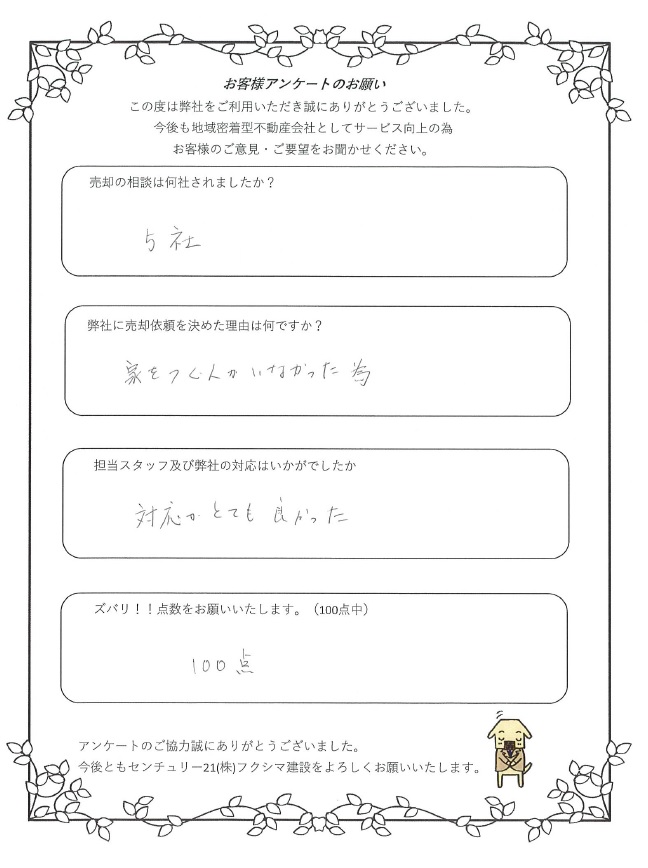 お客様アンケートのお願い
この度は弊社をご利用いただき誠にありがとうございました。
今後も地域密着型不動産会社としてサービス向上の為
お客様のご意見・ご要望をお聞かせください。
売却の相談は何社されましたか?
5社
弊社に売却依頼を決めた理由は何ですか?
家をつぐ人がいなかった為
担当スタッフ及び弊社の対応はいかがでしたか
対応がとても良かった
ズバリ!!点数をお願いいたします。(100点中)
100点
アンケートのご協力誠にありがとうございました。
今後ともセンチュリー21(株)フクシマ建設をよろしくお願いいたします。